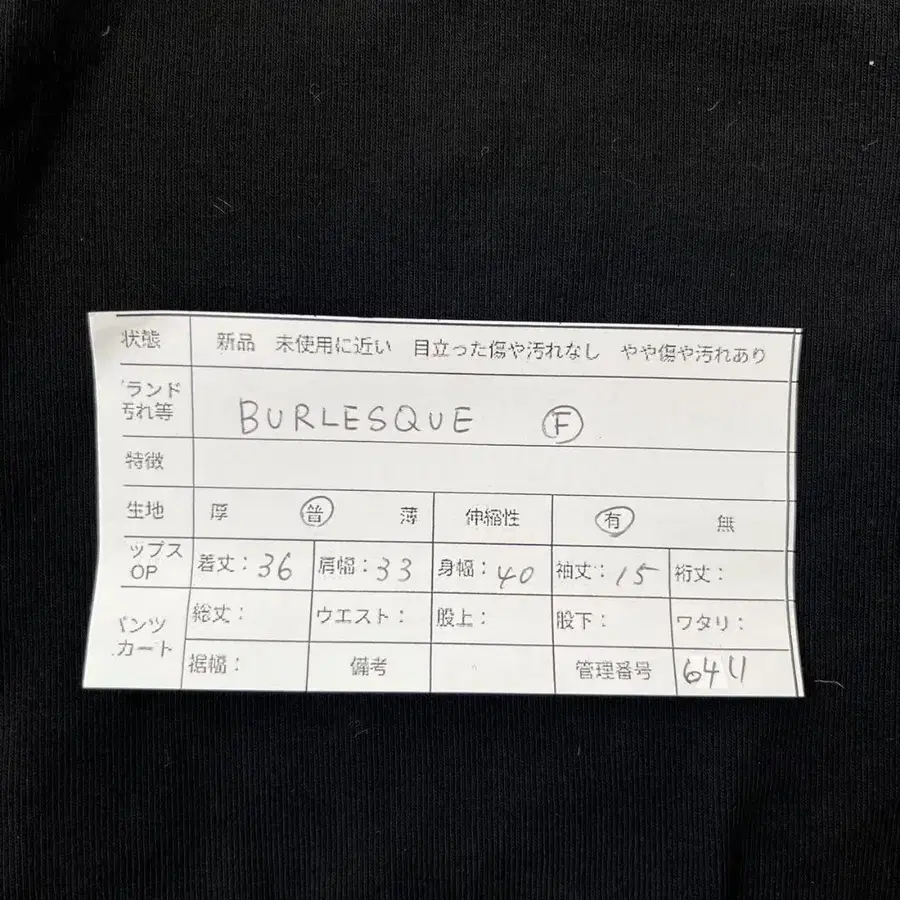 状態 新品 未使用に近い 目立った傷や汚れなし やや傷や汚れあり
ランド
汚れ等 BURLESQUE F
特徴
生地 厚 普 薄 伸縮性 有 無
ップス
OP 着丈：36 肩幅：33 身幅：40 袖丈：15 裄丈：
パンツ
カート 総丈： ウエスト： 股上： 股下： ワタリ：
裾幅： 備考 管理番号